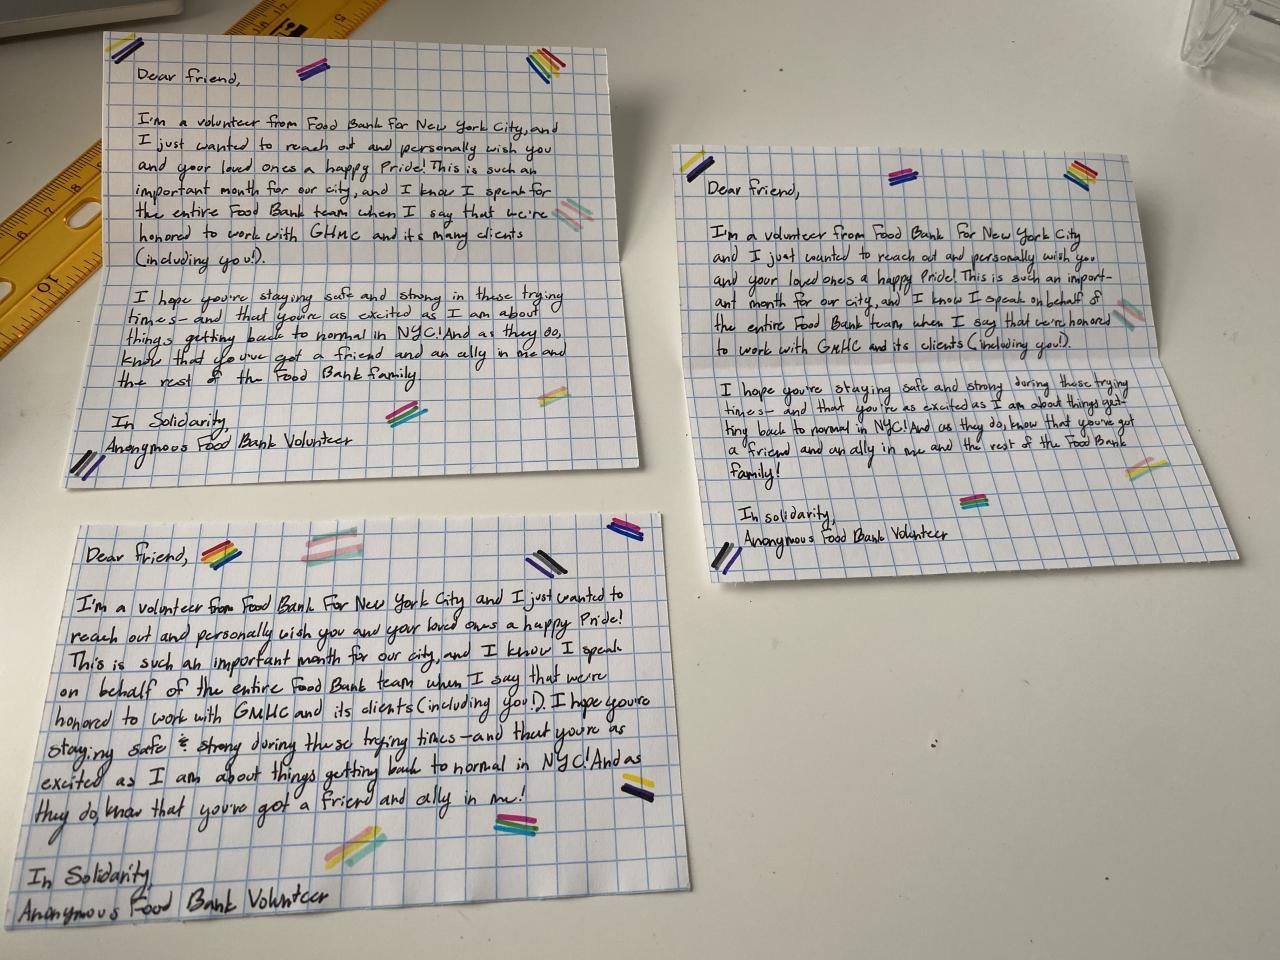 Dear friend,
I'm a volunteer from Food Bank For New York City, and
I just wanted to reach out and personally wish you
and your loved ones a happy Pride! This is such an
important month for our city, and I know I speak for
the entire Food Bank team when I say that we're
honored to work with GHMC and its many clients
(including you!).
I hope you're staying safe and strong in these trying
times—and that you're as excited as I am about
things getting back to normal in NYC! And as they do,
know that you've got a friend and an ally in me and
the rest of the Food Bank family.
In Solidarity,
Anonymous Food Bank Volunteer
Dear friend,
I'm a volunteer from Food Bank For New York City
and I just wanted to reach out and personally wish you
and your loved ones a happy Pride! This is such an import-
ant month for our city, and I know I speak on behalf of
the entire Food Bank team when I say that we're honored
to work with GMHC and its clients (including you!).
I hope you're staying safe and strong during these trying
times—and that you're as excited as I am about things get-
ting back to normal in NYC! And as they do, know that you've got
a friend and an ally in me and the rest of the Food Bank
family!
In solidarity,
Anonymous Food Bank Volunteer
Dear friend,
I'm a volunteer from Food Bank For New York City and I just wanted to
reach out and personally wish you and your loved ones a happy Pride!
This is such an important month for our city, and I know I speak
on behalf of the entire Food Bank team when I say that we're
honored to work with GMHC and its clients (including you!). I hope you're
staying safe & strong during these trying times—and that you're as
excited as I am about things getting back to normal in NYC! And as
they do, know that you've got a friend and ally in me!
In Solidarity,
Anonymous Food Bank Volunteer